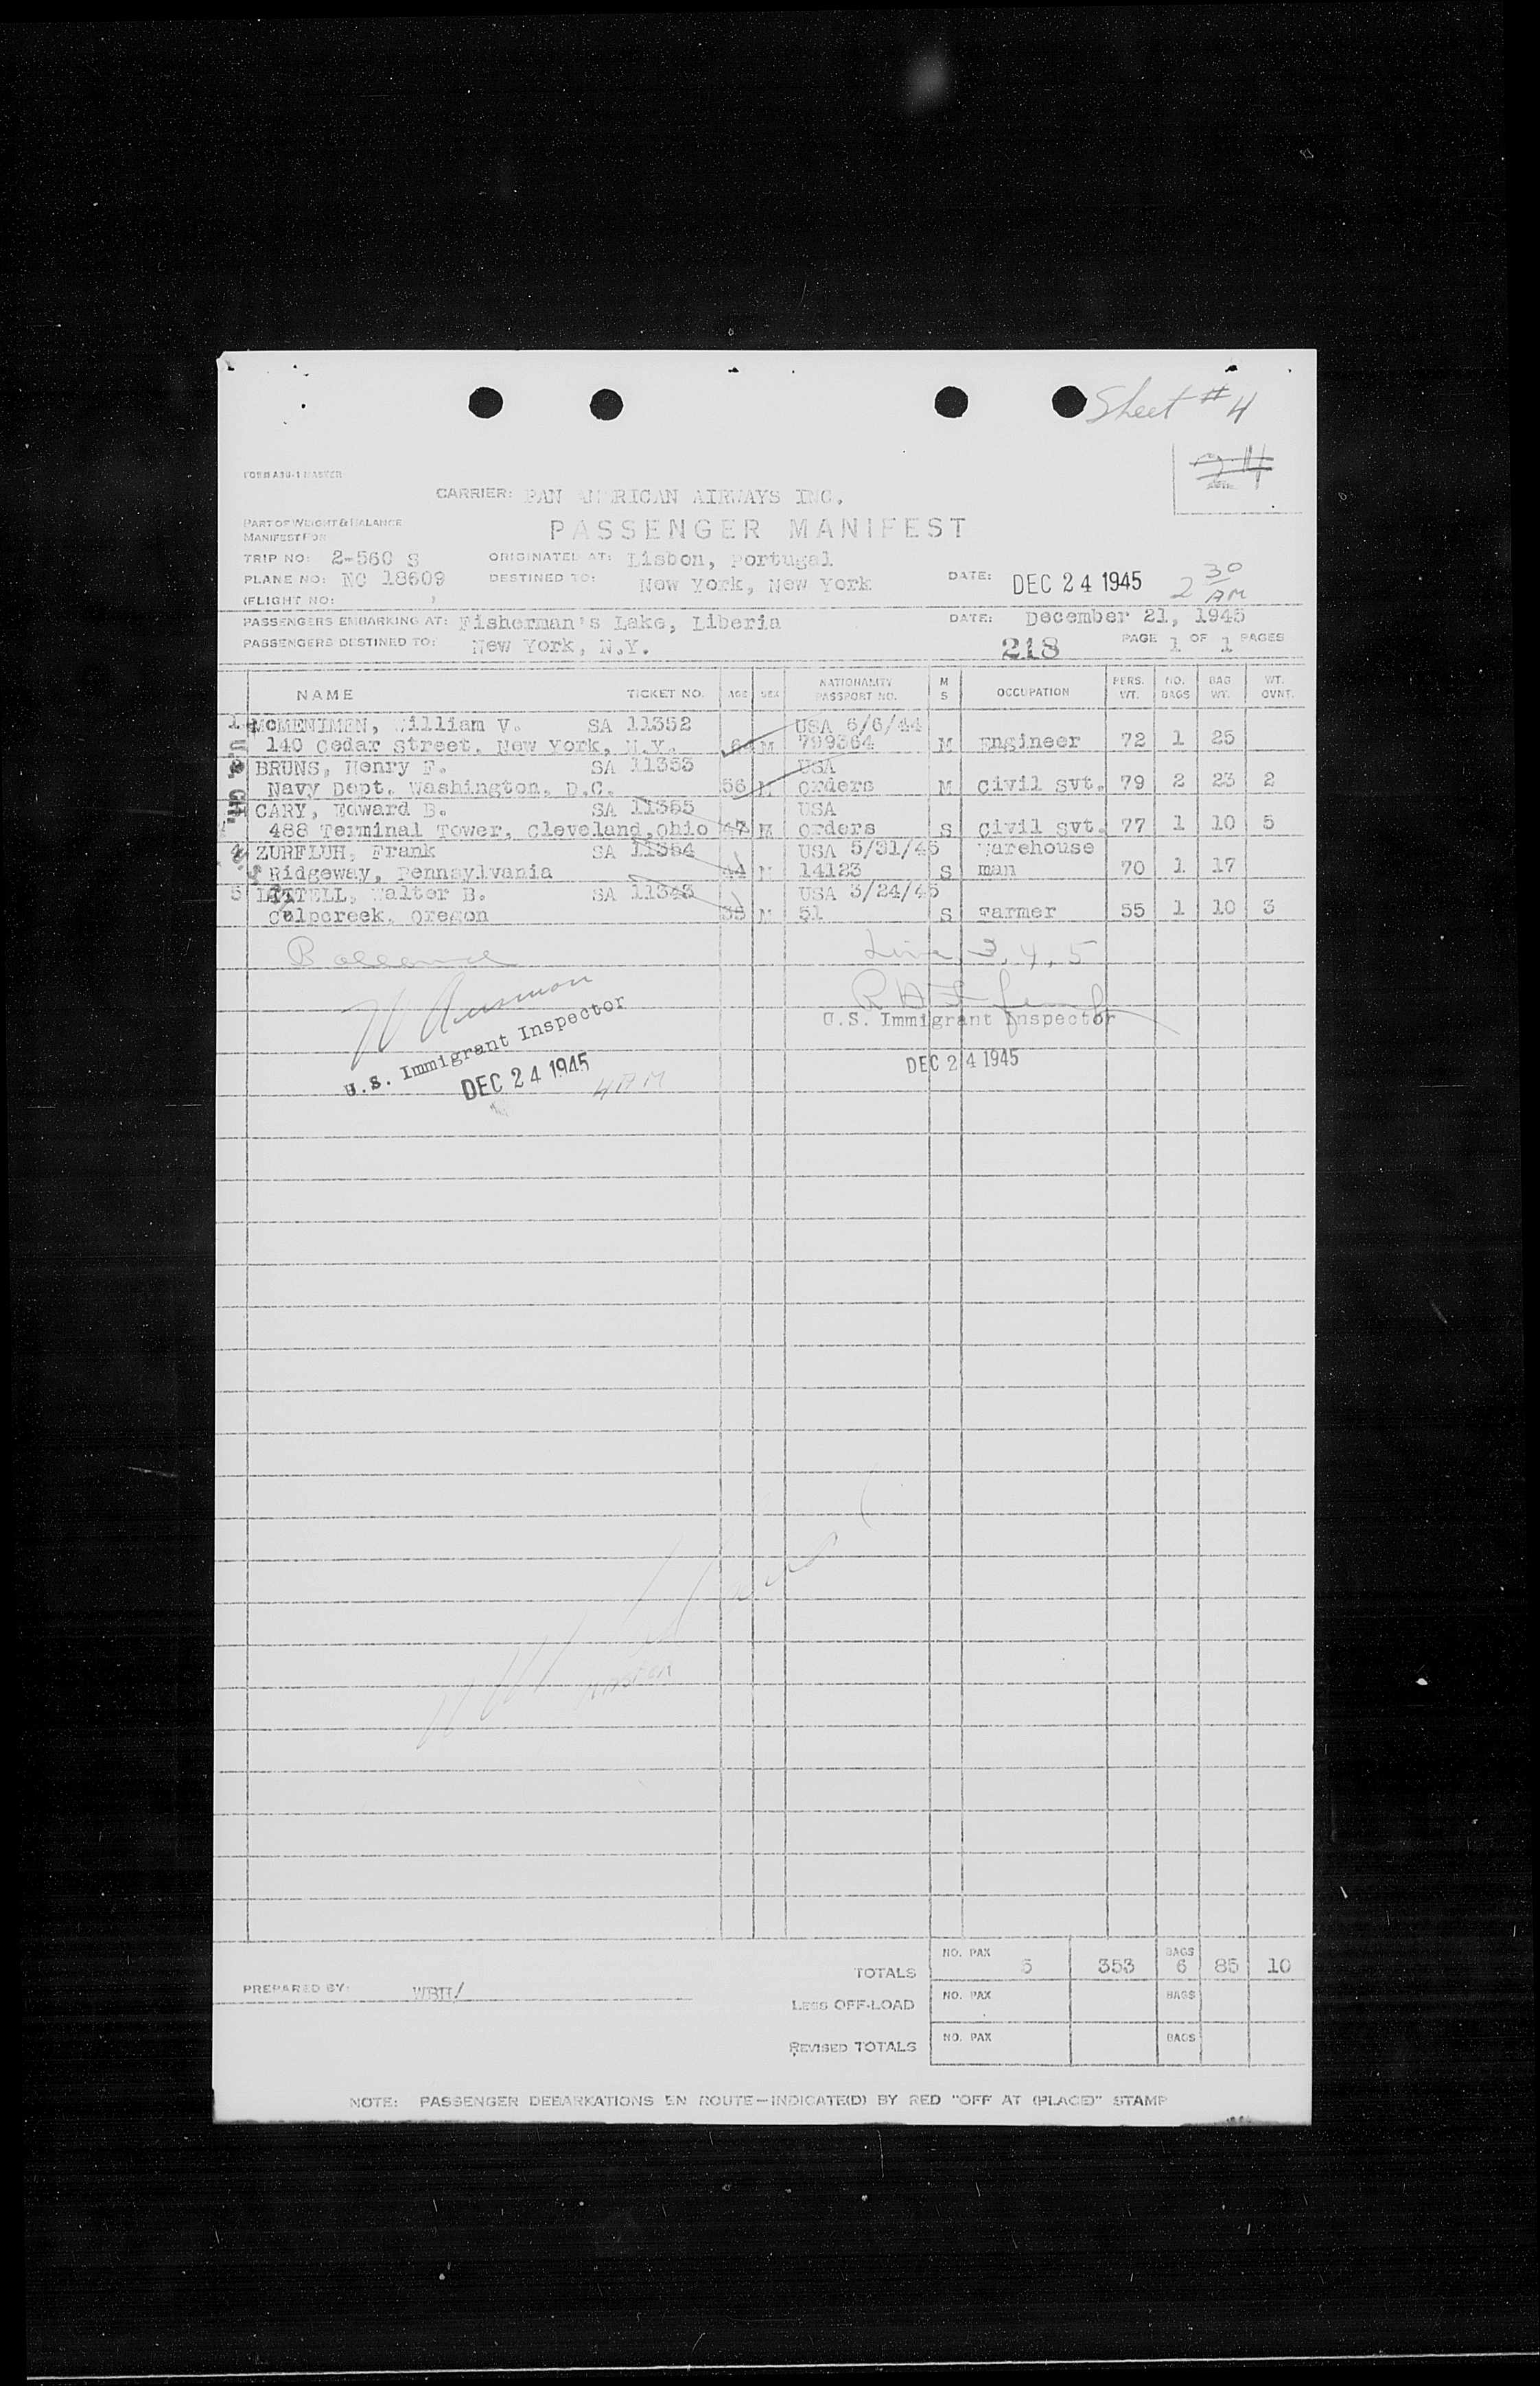 Sheet # 4
FORM A30-1 MASTER
CARRIER: PAN AMERICAN AIRWAYS INC.
PART OF WEIGHT & BALANCE
MANIFEST FOR
PASSENGER MANIFEST
TRIP NO: 2-560 S ORIGINATED AT: Lisbon, Portugal
PLANE NO: NC 18609 DESTINED TO: New York, New York DATE: DEC 24 1945 2 30 AM
(FLIGHT NO: )
PASSENGERS EMBARKING AT: Fisherman's Lake, Liberia DATE: December 21, 1945
PASSENGERS DESTINED TO: New York, N.Y. 218 PAGE 1 OF 1 PAGES
NAME TICKET NO. AGE SEX NATIONALITY PASSPORT NO. M S OCCUPATION PERS. WT. NO. BAGS BAG WT. WT. OVNT.
1 McMENIMEN, William V. SA 11352 USA 6/6/44
140 Cedar Street, New York, N.Y. M 799364 M Engineer 72 1 25
BRUNS, Henry F. SA 11353 USA
Navy Dept. Washington, D.C. 56 M Orders M Civil Svt. 79 2 23 2
CARY, Edward B. SA 11355 USA
488 Terminal Tower, Cleveland, Ohio 47 M Orders S Civil Svt. 77 1 10 5
4 ZURFLUH, Frank SA 11354 USA 5/31/45 Warehouse
Ridgeway, Pennsylvania 44 M 14123 S man 70 1 17
5 LITTELL, Walter B. SA 11343 USA 3/24/45
Culpcreek, Oregon 35 M 51 S Farmer 55 1 10 3
Line 3, 4, 5
U.S. Immigrant Inspector
U.S. Immigrant Inspector
DEC 24 1945
DEC 24 1945 4 AM
TOTALS NO. PAX 5 353 BAGS 6 85 10
PREPARED BY:
LESS OFF-LOAD NO. PAX BAGS
REVISED TOTALS NO. PAX BAGS
NOTE: PASSENGER DEBARKATIONS EN ROUTE—INDICATE(D) BY RED "OFF AT (PLACE)" STAMP